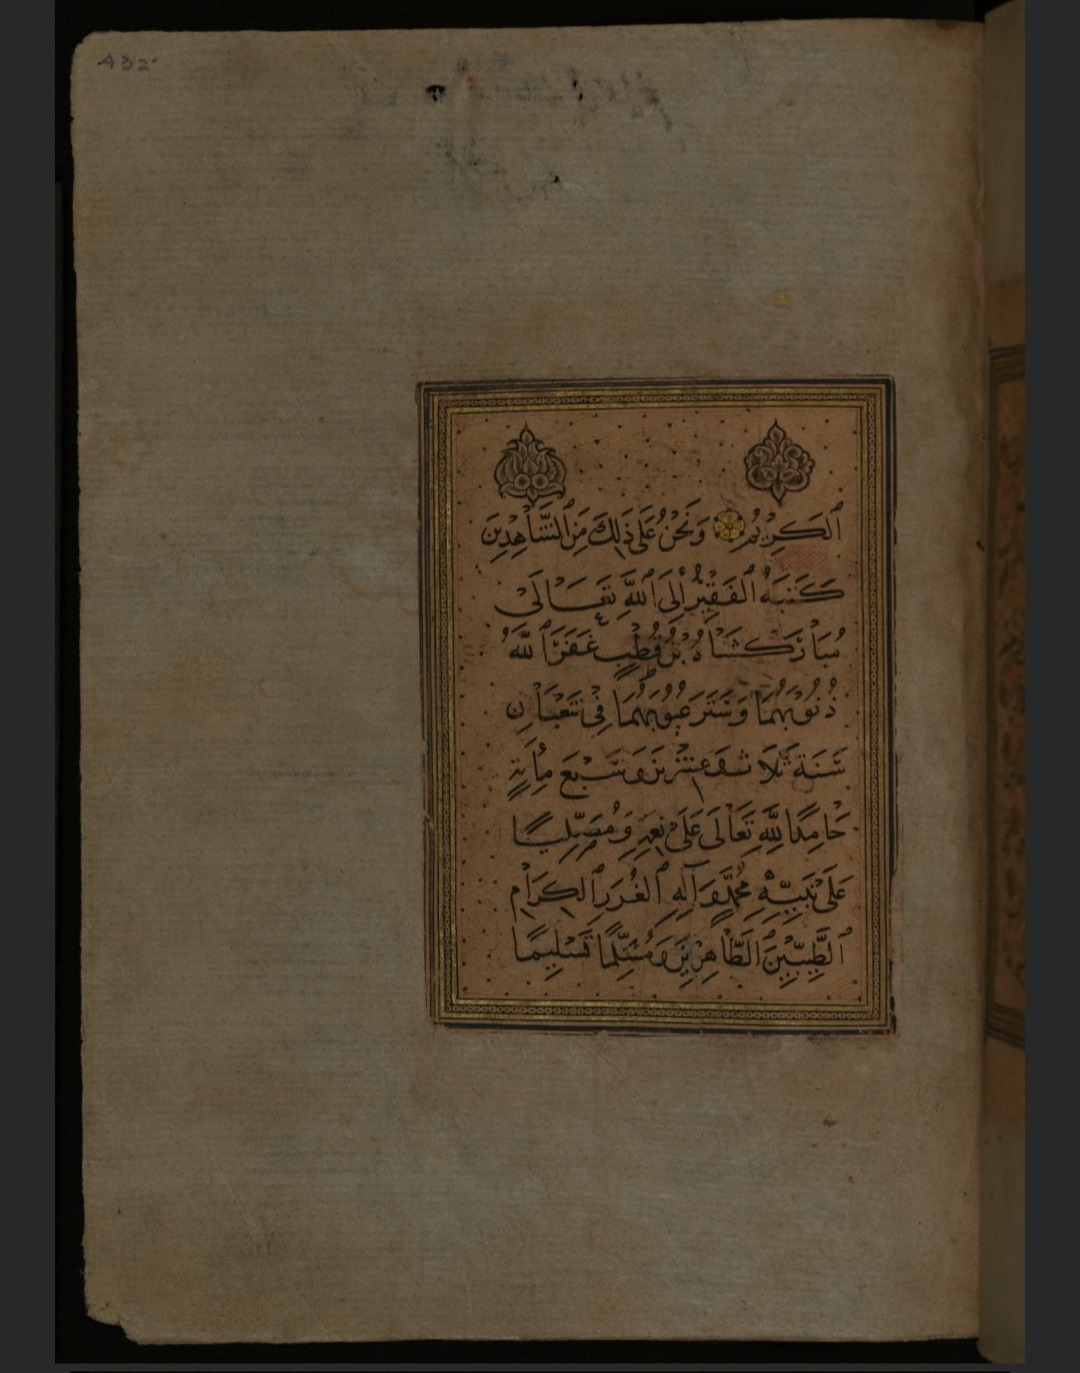 432
ٱلْكَرِيْمُ وَنَحْنُ عَلَى ذَلِكَ مِنَ ٱلشَّاهِدِيْنَ
كَتَبَهُ ٱلْفَقِيْرُ إِلَى ٱللَّهِ تَعَالَى
مُبَارَكْشَاهُ بْنُ قُطْبٍ غَفَرَ ٱللَّهُ
ذُنُوْبَهُمَا وَسَتَرَ عُيُوْبَهُمَا فِيْ شَعْبَانِ
سَنَةَ ثَلَاث وَعِشْرِيْنَ وَسَبْعَ مِأَئَةٍ
حَامِدًا لِلَّهِ تَعَالَى عَلَى نِعَمِهِ وَمُصَلِّيًا
عَلَى نَبِيِّهِ مُحَمَّدٍ وَآلِهِ ٱلْغُرَرِ ٱلْكِرَامِ
ٱلطَّيِّبِيْنَ ٱلطَّاهِرِيْنَ وَمُسَلِّمًا تَسْلِيمًا